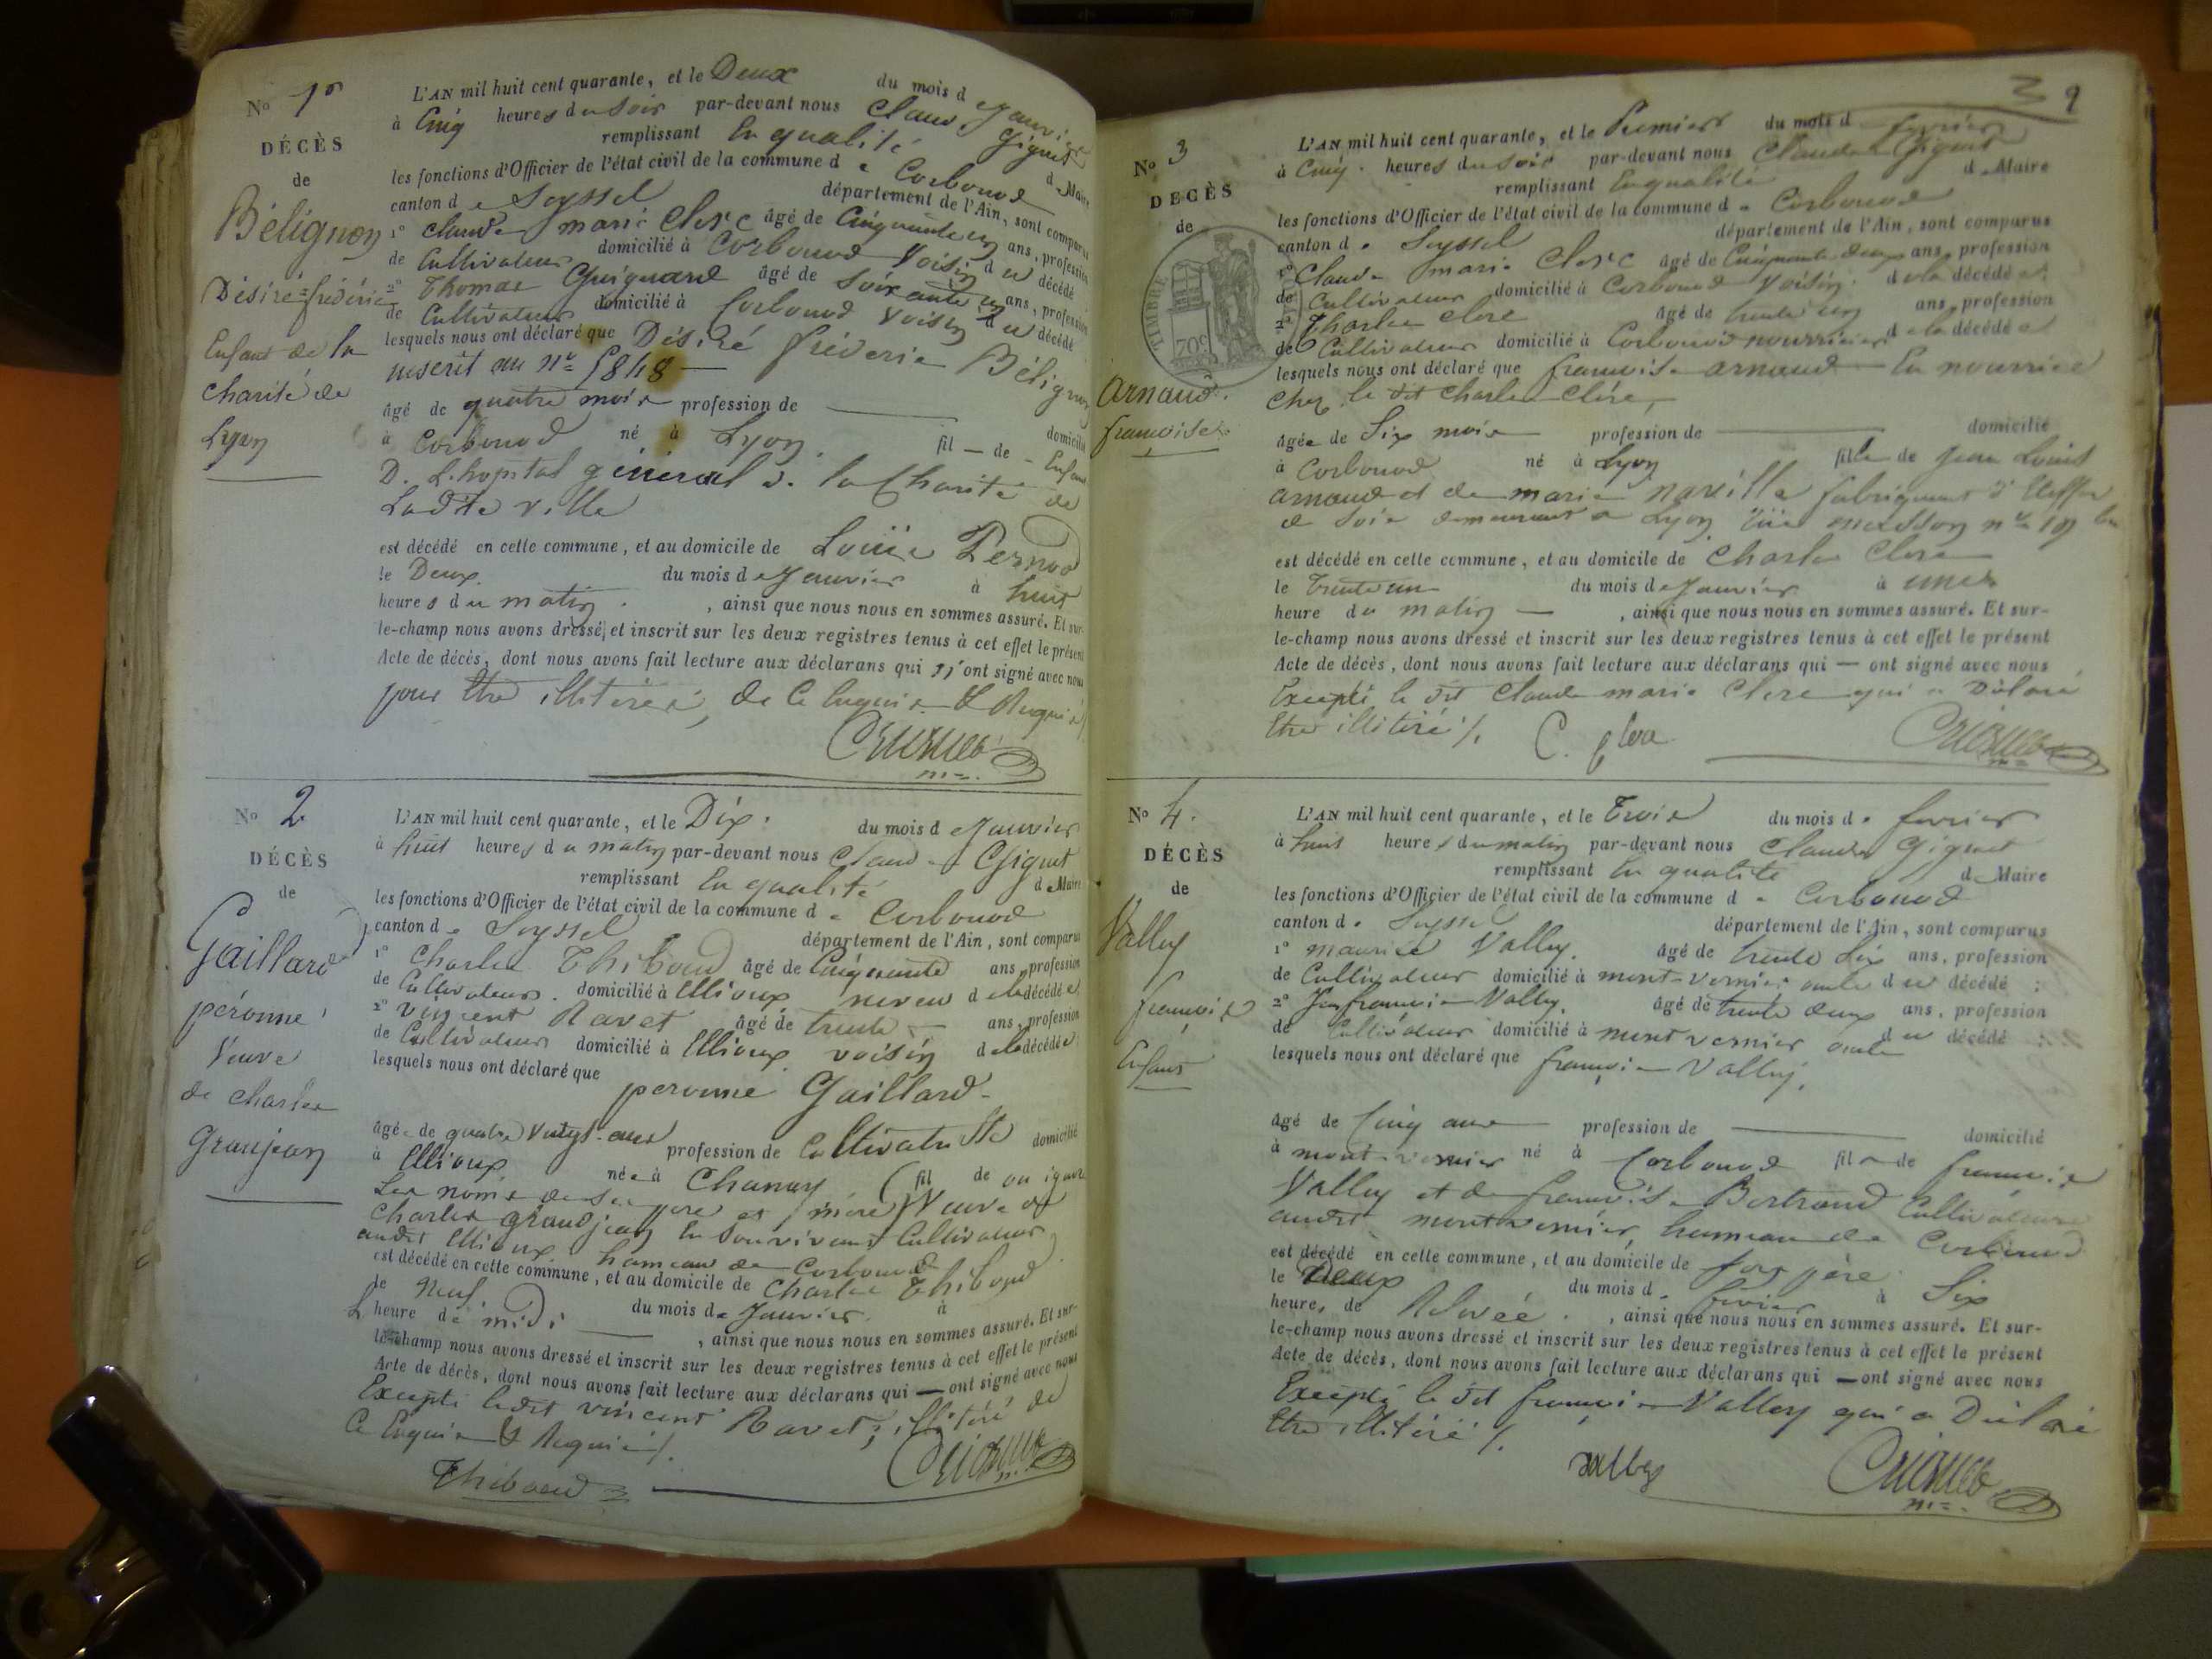 No 1er
DÉCÈS
de
Bélignon
Désiré frédéric
Enfant de la
charité de
Lyon
L'AN mil huit cent quarante, et le Deux du mois de Janvier
à Cinq heures du Soir par-devant nous Claude Giguet
remplissant En qualité de Maire
les fonctions d'Officier de l'état civil de la commune de Corbonod
canton de Seyssel département de l'Ain, sont comparus
1° Claude marie Clerc âgé de Cinquante un ans, profession
de Cultivateur domicilié à Corbonod Voisin du décédé
2° Thomas Guiguard âgé de Soixante un ans, profession
de Cultivateur domicilié à Corbonod Voisin du décédé
lesquels nous ont déclaré que Désiré fréderic Bélignon
inscrit au n° 5848
âgé de quatre mois profession de domicilié
à Corbonod né à Lyon fil de Enfant
D. L'hopital général de la Charité de
Ladite ville
est décédé en cette commune, et au domicile de Louise Pernod
le Deux du mois de Janvier à huit
heures du matin , ainsi que nous nous en sommes assuré. Et sur-
le-champ nous avons dressé et inscrit sur les deux registres tenus à cet effet le présent
Acte de décès, dont nous avons fait lecture aux déclarans qui n'ont signé avec nous
pour être illitérés, de ce Enquis & Requis
No 2
DÉCÈS
de
Gaillard
péronne
Veuve
de charles
Granjean
L'AN mil huit cent quarante, et le Dix du mois de Janvier
à huit heures du matin par-devant nous Claude Giguet
remplissant En qualité de Maire
les fonctions d'Officier de l'état civil de la commune de Corbonod
canton de Seyssel département de l'Ain, sont comparus
1° Charles Thiboud âgé de Cinquante ans, profession
de Cultivateur domicilié à Ellioux neveu de la décédée
2° Vincent Ravet âgé de trente ans, profession
de Cultivateur domicilié à Ellioux voisin de la décédée
lesquels nous ont déclaré que
peronne Gaillard
âgée de quatre Vingts ans profession de Cultivatrice domicilié
à Ellioux née à Chanay (fil de on ignore
Les noms de ses père et mère) Veuve de
Charles grandjean En Son vivant Cultivateur
audit Ellioux hameau de Corbonod
est décédé en cette commune, et au domicile de Charles Thiboud
le neuf du mois de Janvier à
L'heure de midi , ainsi que nous nous en sommes assuré. Et sur-
le-champ nous avons dressé et inscrit sur les deux registres tenus à cet effet le présent
Acte de décès, dont nous avons fait lecture aux déclarans qui — ont signé avec nous
Excepté ledit vincent Ravet, illitéré de
Ce Enquis & Requis /.
Thiboud
9
No 3
DÉCÈS
de
TIMBRE
70c
Arnaud
françoise
L'AN mil huit cent quarante, et le Premier du mois de fevrier
à Cinq heures du Soir par-devant nous Claude Giguet
remplissant En qualité de Maire
les fonctions d'Officier de l'état civil de la commune de Corbonod
canton de Seyssel département de l'Ain, sont comparus
1° Claude marie Clerc âgé de Cinquante deux ans, profession
de Cultivateur domicilié à Corbonod Voisin de la décédée
2° Charles Clerc âgé de trente un ans, profession
de Cultivateur domicilié à Corbonod nourricier de la décédée
lesquels nous ont déclaré que françoise arnaud En nourrice
Chez le dit Charles Clerc,
âgée de Six mois profession de domicilié
à Corbonod né à Lyon fille de Jean Louis
arnaud et de marie naville fabriquant d'Etoffes
de Soie demeurant à Lyon rüe masson
est décédé en cette commune, et au domicile de Charles Clerc
le trente un du mois de Janvier à une
heure du matin , ainsi que nous nous en sommes assuré. Et sur-
le-champ nous avons dressé et inscrit sur les deux registres tenus à cet effet le présent
Acte de décès, dont nous avons fait lecture aux déclarans qui — ont signé avec nous
Excepté le dit Claude marie Clerc qui a Déclaré
être illitéré /.
No 4.
DÉCÈS
de
Valley
françois
Enfant
L'AN mil huit cent quarante, et le Trois du mois de fevrier
à huit heures du matin par-devant nous Claude Giguet
remplissant En qualité de Maire
les fonctions d'Officier de l'état civil de la commune de Corbonod
canton de Seyssel département de l'Ain, sont comparus
1° maurice Valley. âgé de trente Six ans, profession
de Cultivateur domicilié à mont-vernier oncle du décédé ;
2° Jn françois Valley. âgé de trente deux ans, profession
de Cultivateur domicilié à mont vernier oncle du décédé ;
lesquels nous ont déclaré que françois Valley,
âgé de Cinq ans profession de domicilié
à mont-vernier né à Corbonod fils de françois
Valley et de françoise Bertrand Cultivateurs
audit montvernier, hameau de Corbonod
est décédé en cette commune, et au domicile de son père
le Deux du mois de fevrier à Six
heures de Relevée , ainsi que nous nous en sommes assuré. Et sur-
le-champ nous avons dressé et inscrit sur les deux registres tenus à cet effet le présent
Acte de décès, dont nous avons fait lecture aux déclarans qui — ont signé avec nous
Excepté le dit françois Valley qui a Déclaré
être illitéré /.
valley